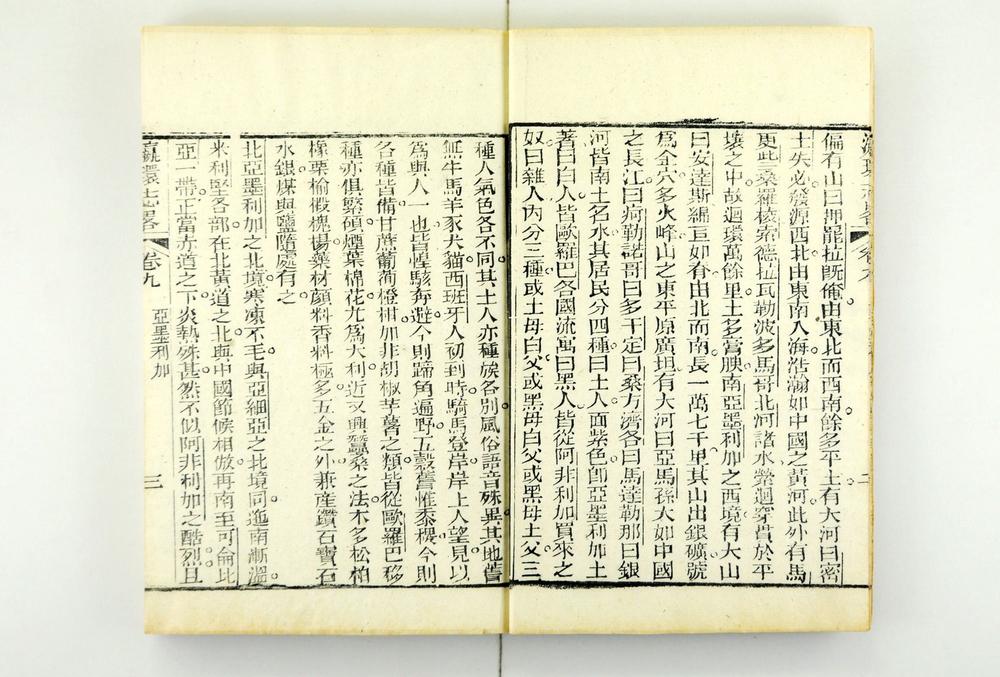 瀛環志畧 卷九
偏有山曰押罷拉旣俺由東北而西南餘多平土有大河曰密
士失必發源西北由東南入海浩瀚如中國之黃河此外有馬
更些桑羅棱索德拉瓦勒波多馬哥北河諸水縈迴穿貫於平
壤之中故迴環萬餘里土多膏腴南亞墨利加之西境有大山
曰安達斯綿亘如脊由北而南長一萬七千里其山出銀礦號
爲金穴多火峰山之東平原廣坦有大河曰亞馬孫大如中國
之長江曰疴勒諾哥曰多干定曰桑方濟各曰馬達勒那曰銀
河皆南土名水其居民分四種曰土人面紫色卽亞墨利加土
著曰白人皆歐羅巴各國流寓曰黑人皆從阿非利加買來之
奴曰雜人內分三種或土母白父或黑母白父或黑母土父三
種人氣色各不同其土人亦種族各別風俗語音殊異其地舊
無牛馬羊豕犬貓西班牙人初到時騎馬登岸岸上人望見以
爲與人一也皆惶駭奔避今則蹄角遍野五穀舊惟黍稷今則
各種皆備甘蔗葡萄橙柑加非胡椒芋薯之類皆從歐羅巴移
種亦俱繁碩煙葉棉花尤爲大利近又興蠶桑之法木多松柏
橡栗榆椵槐楊藥材顏料香料極多五金之外兼産鑽石寶石
水銀煤與鹽隨處有之
北亞墨利加之北境寒凍不毛與亞細亞之北境同迤南漸溫
米利堅各部在北黃道之北與中國節候相倣再南至可侖比
亞一帶正當赤道之下炎熱殊甚然不似阿非利加之酷烈且
瀛環志畧 卷九 亞墨利加 三